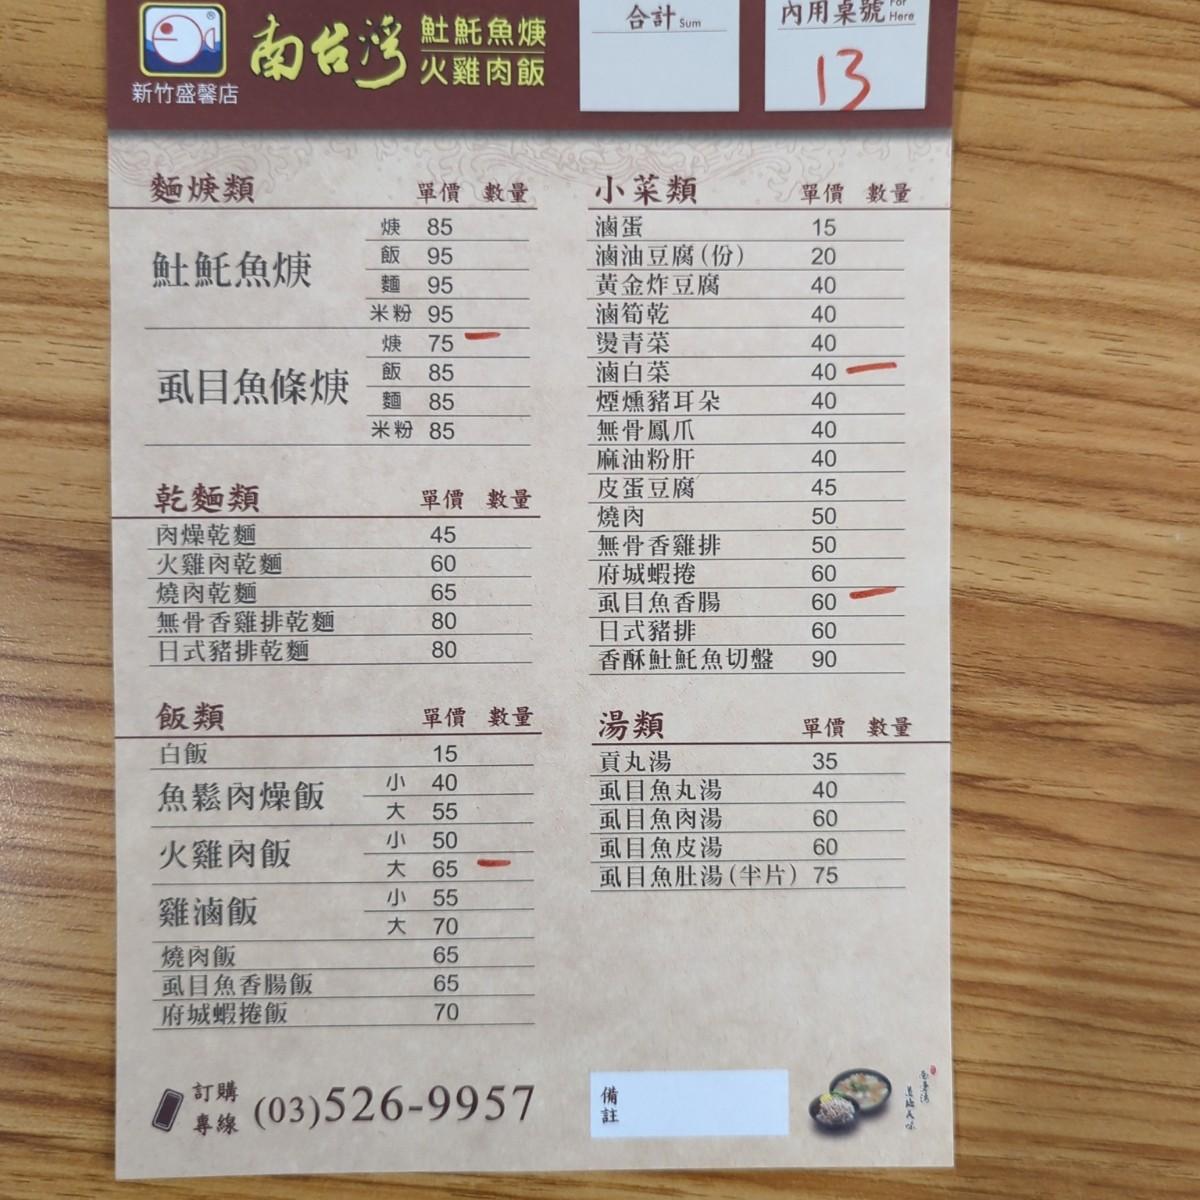 新竹盛馨店
南台灣
魠魠魚焿
火雞肉飯
合計 Sum
內用桌號 For Here
13
麵焿類 單價 數量
魠魠魚焿
焿 85
飯 95
麵 95
米粉 95
虱目魚條焿
焿 75 一
飯 85
麵 85
米粉 85
乾麵類 單價 數量
肉燥乾麵 45
火雞肉乾麵 60
燒肉乾麵 65
無骨香雞排乾麵 80
日式豬排乾麵 80
飯類 單價 數量
白飯 15
魚鬆肉燥飯
小 40
大 55
火雞肉飯
小 50
大 65 一
雞滷飯
小 55
大 70
燒肉飯 65
虱目魚香腸飯 65
府城蝦捲飯 70
小菜類 單價 數量
滷蛋 15
滷油豆腐(份) 20
黃金炸豆腐 40
滷筍乾 40
燙青菜 40
滷白菜 40 一
煙燻豬耳朵 40
無骨鳳爪 40
麻油粉肝 40
皮蛋豆腐 45
燒肉 50
無骨香雞排 50
府城蝦捲 60
虱目魚香腸 60 一
日式豬排 60
香酥𩵚魠魚切盤 90
湯類 單價 數量
貢丸湯 35
虱目魚丸湯 40
虱目魚肉湯 60
虱目魚皮湯 60
虱目魚肚湯(半片) 75
訂購
專線
(03)526-9957
備
註